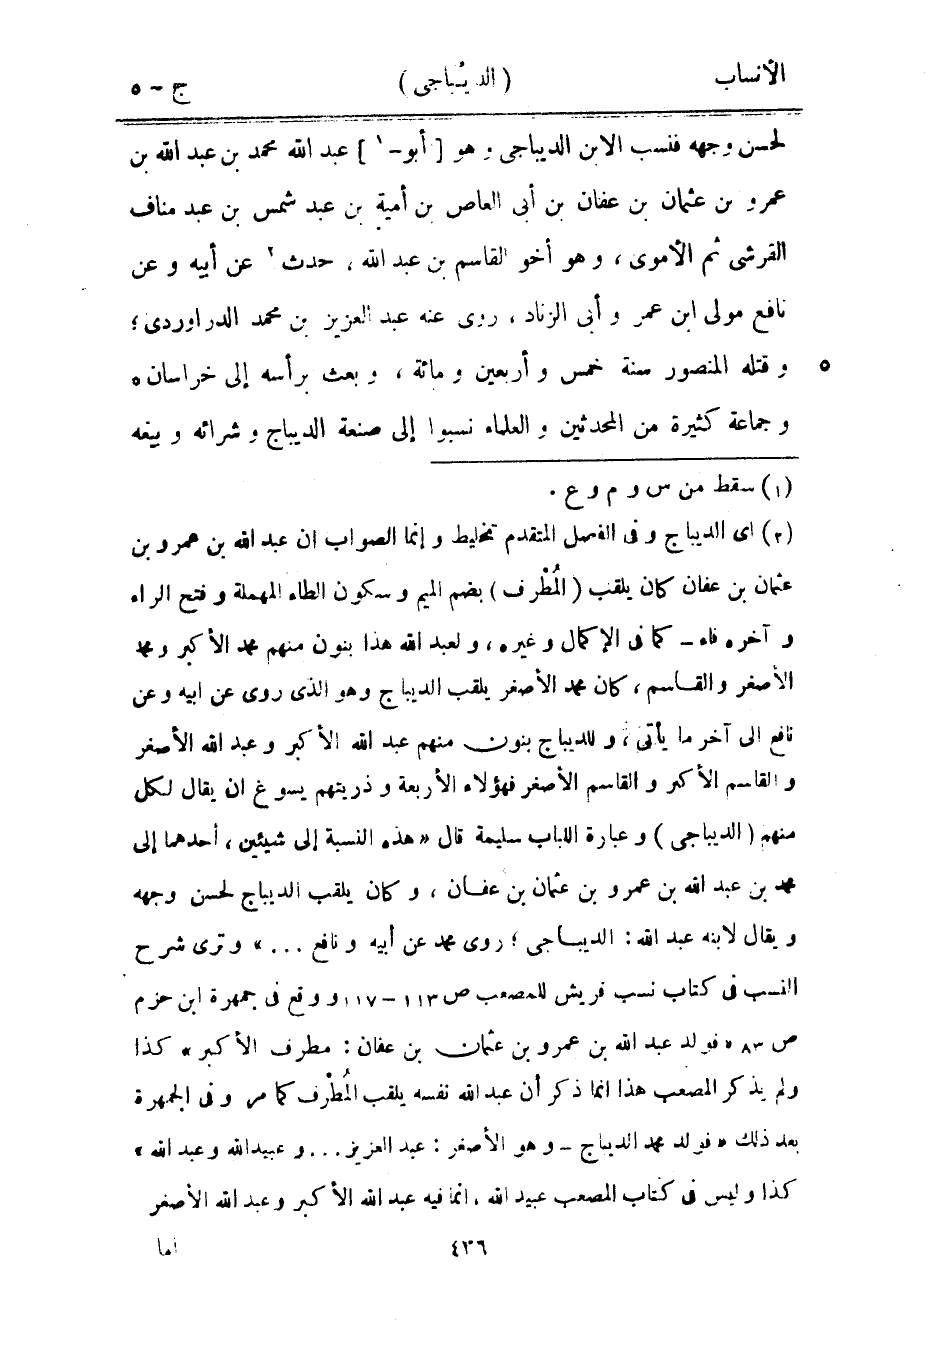 الأنساب ( الديُباجى ) ج - ٥
لحسن وجهه فنسب الابن الديباجى و هو [ أبو-١ ] عبد الله محمد بن عبد الله بن
عمرو بن عثمان بن عفان بن أبى العاص بن أمية بن عبد شمس بن عبد مناف
القرشى ثم الأموى ، و هو أخو القاسم بن عبد الله ، حدث ٢ عن أبيه و عن
نافع مولى ابن عمر و أبى الزناد ، روى عنه عبد العزيز بن محمد الدراوردى ؛
و قتله المنصور سنة خمس و أربعين و مائة ، و بعث برأسه إلى خراسان ٥ ٥
و جماعة كثيرة من المحدثين و العلماء نسبوا إلى صنعة الديباج و شرائه و بيعه
(١) سقط من س و م و ع .
(٢) اى الديباج و فى الفصل المتقدم تخليط و إنما الصواب ان عبد الله بن عمرو بن
عثمان بن عفان كان يلقب ( المُطْرف ) بضم الميم و سكون الطاء المهملة و فتح الراء
و آخره فاء ـ كما فى الإكمال و غيره ، و لعبد الله هذا بنون منهم محمد الأكبر و محمد
الأصغر و القاسم ، كان محمد الأصغر يلقب الديباج وهو الذى روى عن ابيه و عن
نافع الى آخر ما يأتى ، و للديباج بنون منهم عبد الله الأكبر و عبد الله الأصغر
و القاسم الأكبر و القاسم الأصغر فهؤلاء الأربعة و ذريتهم يسوغ ان يقال لكل
منهم ( الديباجى ) و عبارة اللباب سليمة قال « هذه النسبة إلى شيئين ، أحدهما إلى
محمد بن عبد الله بن عمرو بن عثمان بن عفان ، و كان يلقب الديباج لحسن وجهه
و يقال لابنه عبد الله : الديباجى ؛ روى محمد عن أبيه و نافع ... » و ترى شرح
النسب فى كتاب نسب قريش للمصعب ص ١١٣ - ١١٧ و وقع فى جمهرة ابن حزم
ص ٨٣ « فولد عبد الله بن عمرو بن عثمان بن عفان : مطرف الأكبر » كذا
ولم يذكر المصعب هذا انما ذكر أن عبد الله نفسه يلقب المُطْرف كما مر و فى الجمهرة
بعد ذلك « فولد محمد الديباج ـ و هو الأصغر : عبد العزيز ... و عبيدالله وعبد الله »
كذا و ليس فى كتاب المصعب عبيد الله ، انما فيه عبد الله الأكبر و عبد الله الأصغر
٤٣٦ اما